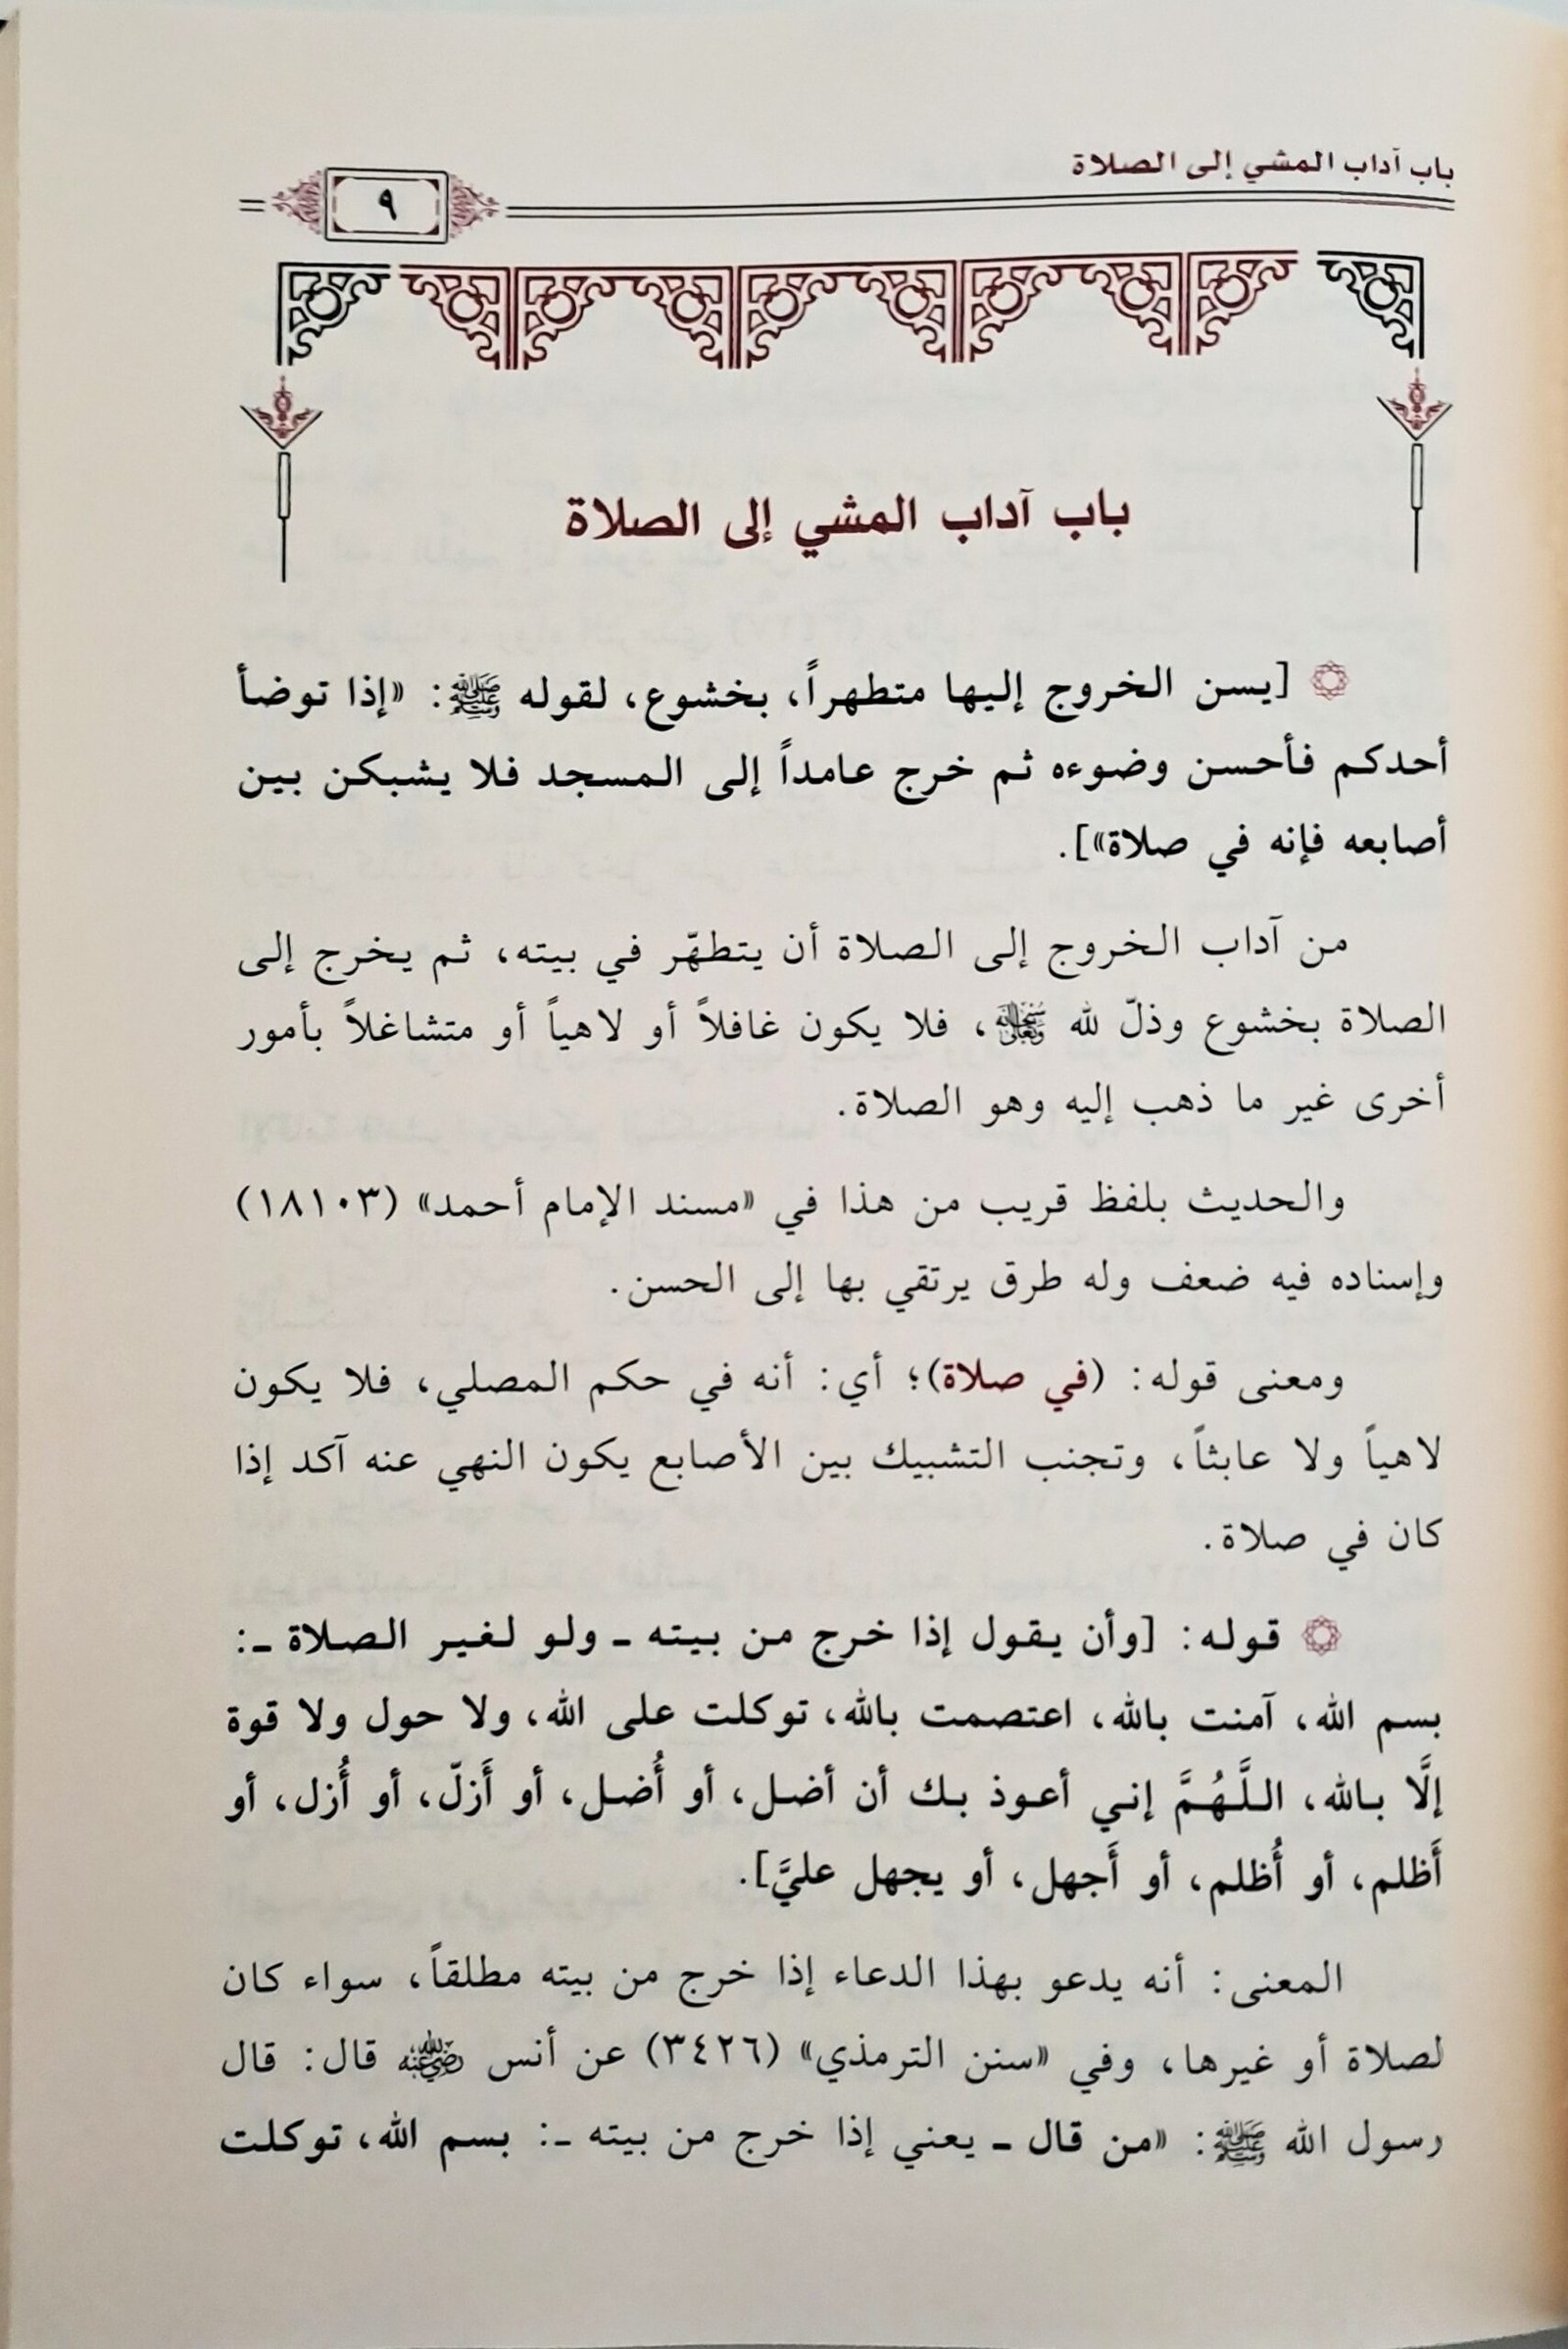 باب آداب المشي إلى الصلاة
٩
باب آداب المشي إلى الصلاة
[يسن الخروج إليها متطهراً، بخشوع، لقوله ﷺ: «إذا توضأ
أحدكم فأحسن وضوءه ثم خرج عامداً إلى المسجد فلا يشبكن بين
أصابعه فإنه في صلاة»].
من آداب الخروج إلى الصلاة أن يتطهّر في بيته، ثم يخرج إلى
الصلاة بخشوع وذلّ لله سبحانه وتعالى، فلا يكون غافلاً أو لاهياً أو متشاغلاً بأمور
أخرى غير ما ذهب إليه وهو الصلاة.
والحديث بلفظ قريب من هذا في «مسند الإمام أحمد» (١٨١٠٣)
وإسناده فيه ضعف وله طرق يرتقي بها إلى الحسن.
ومعنى قوله: (في صلاة)؛ أي: أنه في حكم المصلي، فلا يكون
لاهياً ولا عابثاً، وتجنب التشبيك بين الأصابع يكون النهي عنه آكد إذا
كان في صلاة.
قوله: [وأن يقول إذا خرج من بيته ـ ولو لغير الصلاة ـ:
بسم الله، آمنت بالله، اعتصمت بالله، توكلت على الله، ولا حول ولا قوة
إلَّا بالله، اللَّهُمَّ إني أعوذ بك أن أضل، أو أُضل، أو أَزلّ، أو أُزل، أو
أَظلم، أو أُظلم، أو أَجهل، أو يجهل عليَّ].
المعنى: أنه يدعو بهذا الدعاء إذا خرج من بيته مطلقاً، سواء كان
لصلاة أو غيرها، وفي «سنن الترمذي» (٣٤٢٦) عن أنس رضي الله عنه قال: قال
رسول الله ﷺ: «من قال ـ يعني إذا خرج من بيته ـ: بسم الله، توكلت